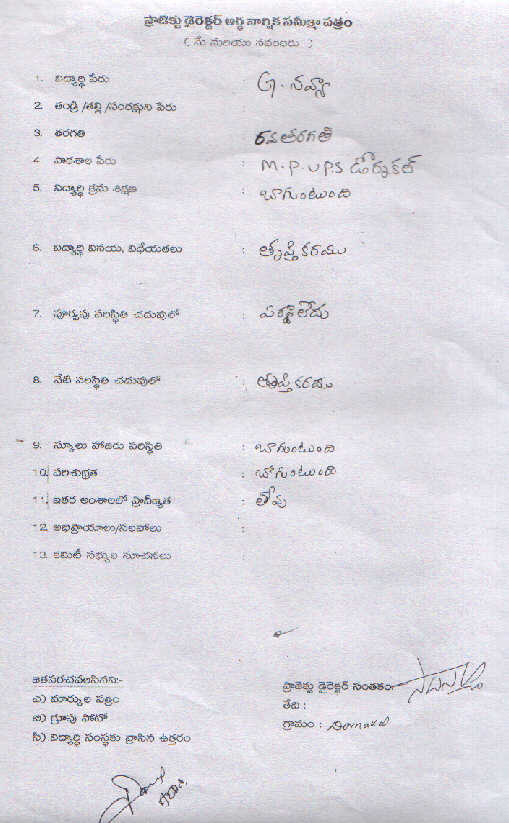 ప్రాజెక్టు డైరెక్టర్ అర్ధ వార్షిక సమీక్షా పత్రం
( మే మరియు నవంబరు )
1. విద్యార్థి పేరు : G. నవ్యా
2. తండ్రి /తల్లి /సంరక్షకుని పేరు :
3. తరగతి : 6వ తరగతి
4. పాఠశాల పేరు : M.P.U.P.S డోర్నకల్
5. విద్యార్థి క్రమ శిక్షణ : బాగుంటుంది
6. విద్యార్థి వినయ, విధేయతలు : తృప్తికరము
7. పూర్వపు పరిస్థితి చదువులో : పర్వాలేదు
8. నేటి పరిస్థితి చదువులో : తృప్తికరము
9. స్కూలు హాజరు పరిస్థితి : బాగుంటుంది
10. పరిశుభ్రత : బాగుంటుంది
11. ఇతర అంశాలలో ప్రావీణ్యత : లేవు
12. అభిప్రాయాలు/సలహాలు :
13. కమిటీ సభ్యుల సూచనలు
జతపరచవలసినవి:-
ఎ) మార్కుల పత్రం
బి) గ్రూపు ఫోటో
సి) విద్యార్థి సంస్థకు వ్రాసిన ఉత్తరం
ప్రాజెక్టు డైరెక్టర్ సంతకం:
తేది :
గ్రామం : Dornakal